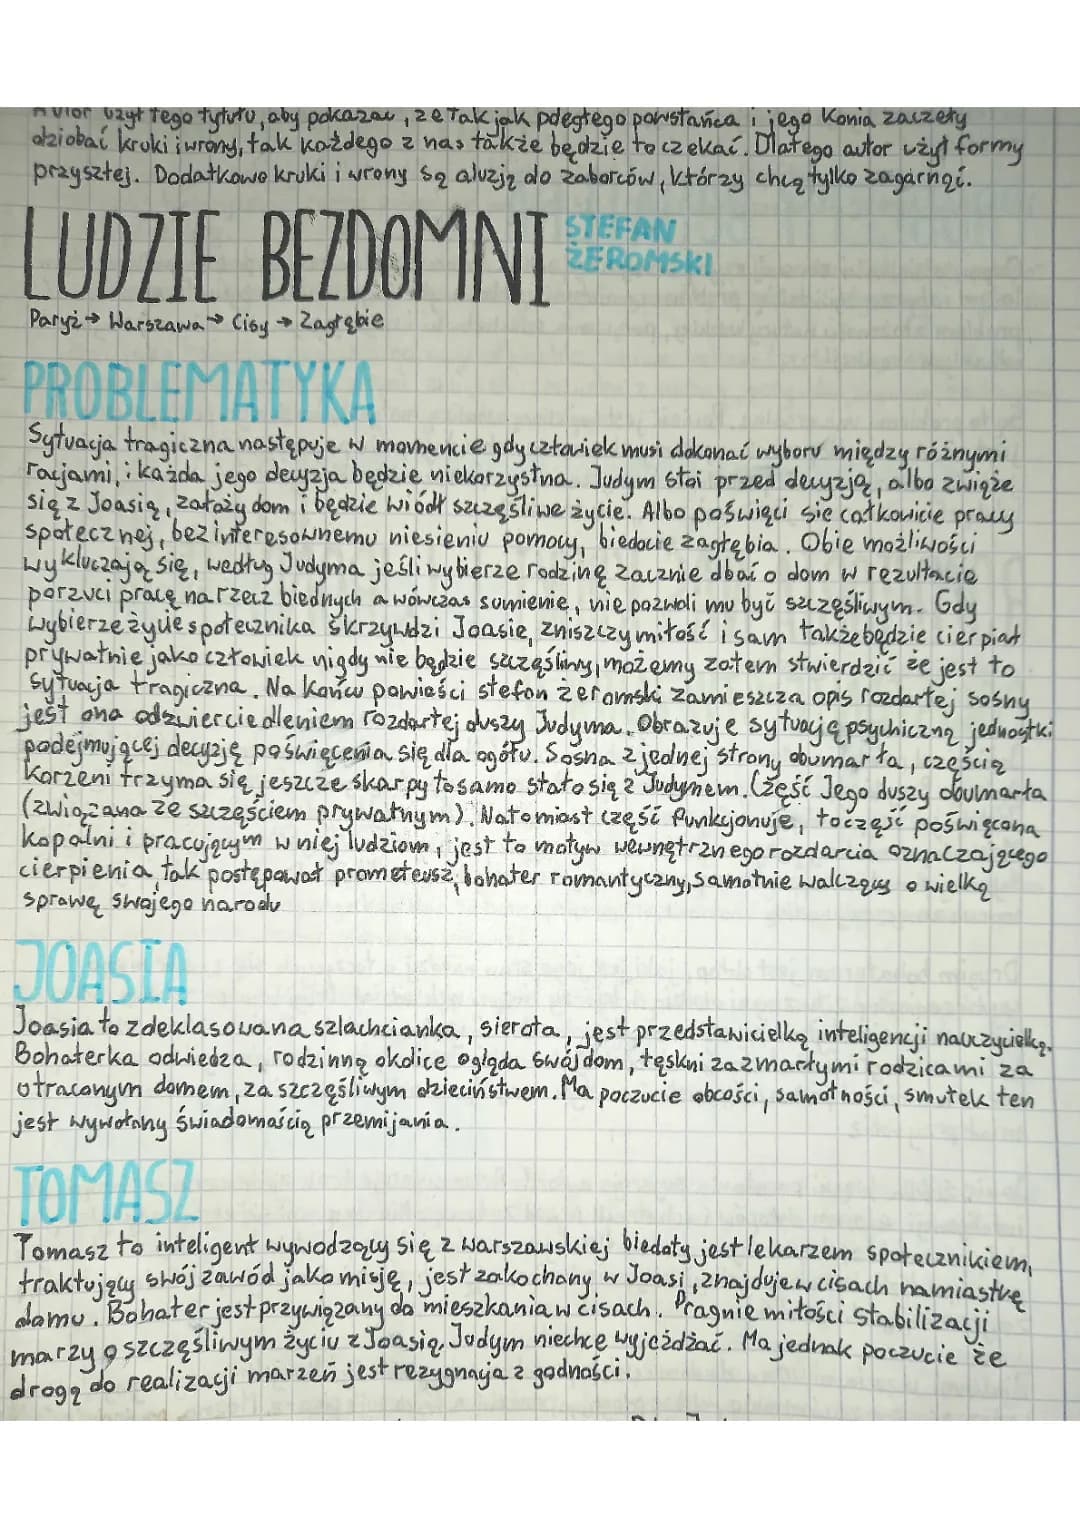 Autor użył tego tytułu, aby pokazać, że tak jak poległego powstańca i jego konia zaczęły
dziobać kruki i wrony, tak każdego z nas także będzie to czekać. Dlatego autor użył formy
przyszłej. Dodatkowo kruki i wrony są aluzją do zaborców, którzy chcą tylko zagarnąć.
LUDZIE BEZDOMNI STEFAN
ŻEROMSKI
Paryż → Warszawa → Cisy → Zagłębie
PROBLEMATYKA
Sytuacja tragiczna następuje w momencie gdy człowiek musi dokonać wyboru między różnymi
racjami, i każda jego decyzja będzie niekorzystna. Judym stoi przed decyzją, albo zwiąże
się z Joasią, założy dom i będzie wiódł szczęśliwe życie. Albo poświęci się całkowicie pracy
społecznej, bezinteresownemu niesieniu pomocy, biedocie zagłębia. Obie możliwości
wykluczają się, według Judyma jeśli wybierze rodzinę zacznie dbać o dom w rezultacie
porzuci pracę na rzecz biednych a wówczas sumienie, nie pozwoli mu być szczęśliwym. Gdy
wybierze życie społecznika skrzywdzi Joasię, zniszczy miłość i sam także będzie cierpiał
prywatnie jako człowiek nigdy nie będzie szczęśliwy, możemy zatem stwierdzić że jest to
sytuacja tragiczna. Na końcu powieści stefan żeromski zamieszcza opis rozdartej sosny
jest ona odzwierciedleniem rozdartej duszy Judyma. Obrazuje sytuację psychiczną jednostki
podejmującej decyzję poświęcenia się dla ogółu. Sosna z jednej strony obumarła, częścią
korzeni trzyma się jeszcze skarpy to samo stało się z Judymem. Część Jego duszy obumarła
(związana ze szczęściem prywatnym). Natomiast część funkcjonuje, to część poświęcona
kopalni i pracującym w niej ludziom, jest to motyw wewnętrznego rozdarcia oznaczającego
cierpienia tak postępował prometeusz, bohater romantyczny, samotnie walczący o wielką
sprawę swojego narodu
JOASIA
Joasia to zdeklasowana szlachcianka, sierota, jest przedstawicielką inteligencji nauczycielką.
Bohaterka odwiedza, rodzinną okolice ogląda swój dom, tęskni za zmarłymi rodzicami za
utraconym domem, za szczęśliwym dzieciństwem. Ma poczucie obcości, samotności, smutek ten
jest wywołany świadomością przemijania.
TOMASZ
Tomasz to inteligent wywodzący się z warszawskiej biedoty jest lekarzem społecznikiem,
traktujący swój zawód jako misję, jest zakochany w Joasi, znajduje w cisach namiastkę
domu. Bohater jest przywiązany do mieszkania w cisach. Pragnie miłości stabilizacji
marzy o szczęśliwym życiu z Joasią. Judym niechce wyjeżdżać. Ma jednak poczucie że
drogą do realizacji marzeń jest rezygnacja z godności.